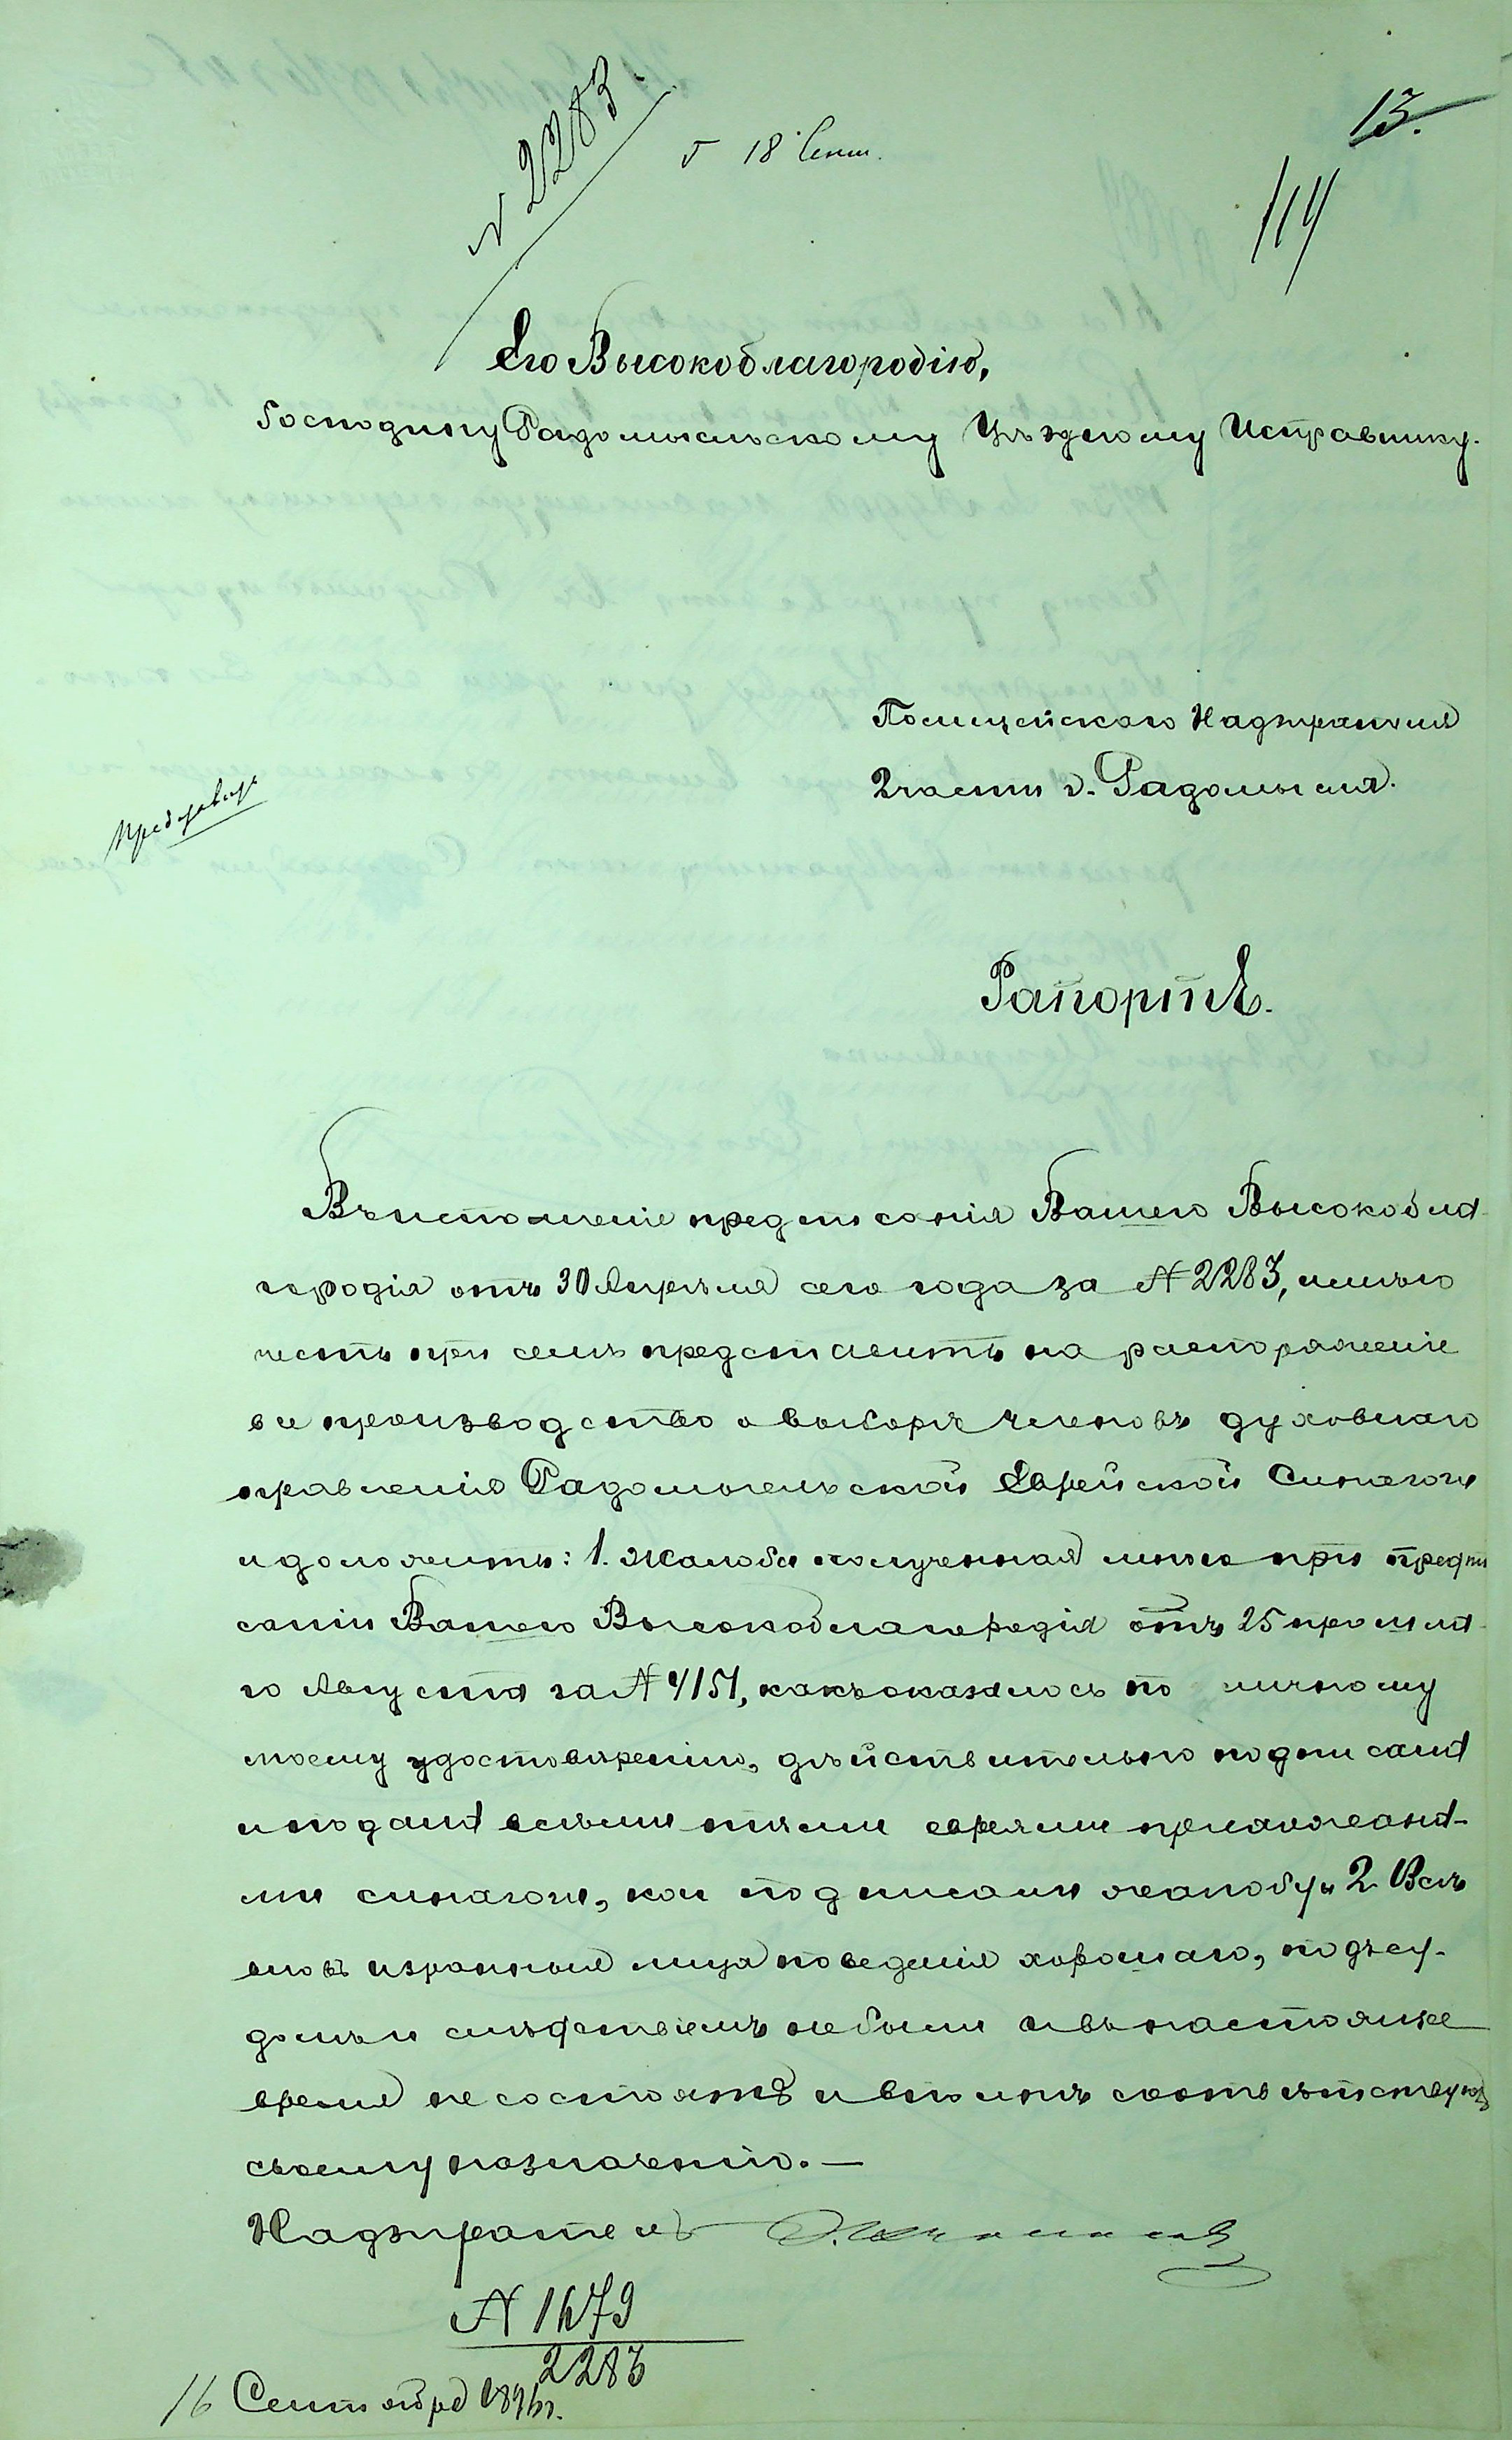 13.
№ 2283
18 Сент.
114
Его Высокоблагородію,
Господину Радомысльскому Уѣздному Исправнику.
Полицейскаго Надзирателя
2 части г. Радомысля.
Рапортъ.
Въ исполненіе предписанія Вашего Высокобла-
городія отъ 30 Апрѣля сего года за № 2283, имѣю
честь при семъ представить на распоряженіе
все производство о выборѣ членовъ духовнаго
правленія Радомысльской Еврейской Синагоги
и доложить: 1. жалоба полученная мною при предпи
саніи Вашего Высокоблагородія отъ 25 прошла-
го Августа за № 4151, какъ оказалось по личному
моему удостовѣренію, дѣйствительно подписана
и подана всѣми тѣми евреями прихожана-
ми синагоги, кои подписали жалобу и 2 Всѣ
вновь избранныя лица поведенія хорошаго, подъ су-
домъ и слѣдствіемъ не были и въ настоящее
время не состоятъ и вполнѣ соотвѣтствуютъ
своему назначенію. —
Надзиратель
№ 1679
2283
16 Сентября 1896 г.